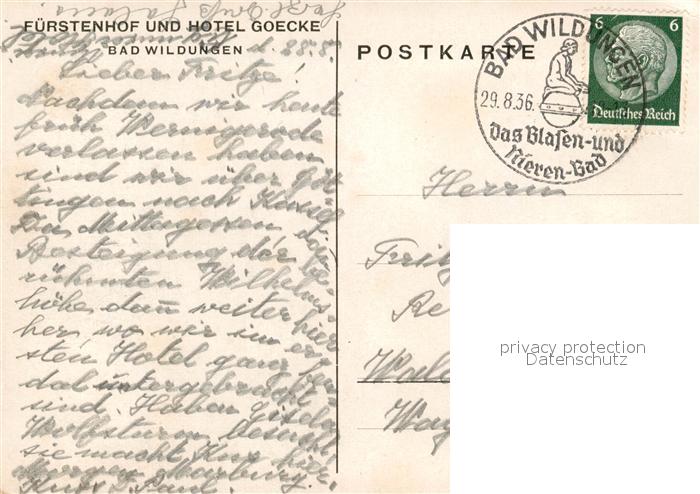 FÜRSTENHOF UND HOTEL GOECKE
BAD WILDUNGEN
28.8.
Lieber Fritze!
Nachdem wir heute
früh Wernigerode
verlassen haben
sind wir über Göt-
tingen nach Kassel
Da Mittagessen
Besteigung der be-
rühmten Wilhelms-
höhe dann weiter hier
her wo wir im er-
sten Hotel ganz
untergebracht
sind. Haben
Wolfsturm besucht
sie macht Kur hier.
Morgen Marburg.
POSTKARTE
BAD WILDUNGEN
29.8.36.
Das Blasen- und
Nieren-Bad
6 6
Deutsches Reich
Herrn
Fritz
privacy protection
Datenschutz